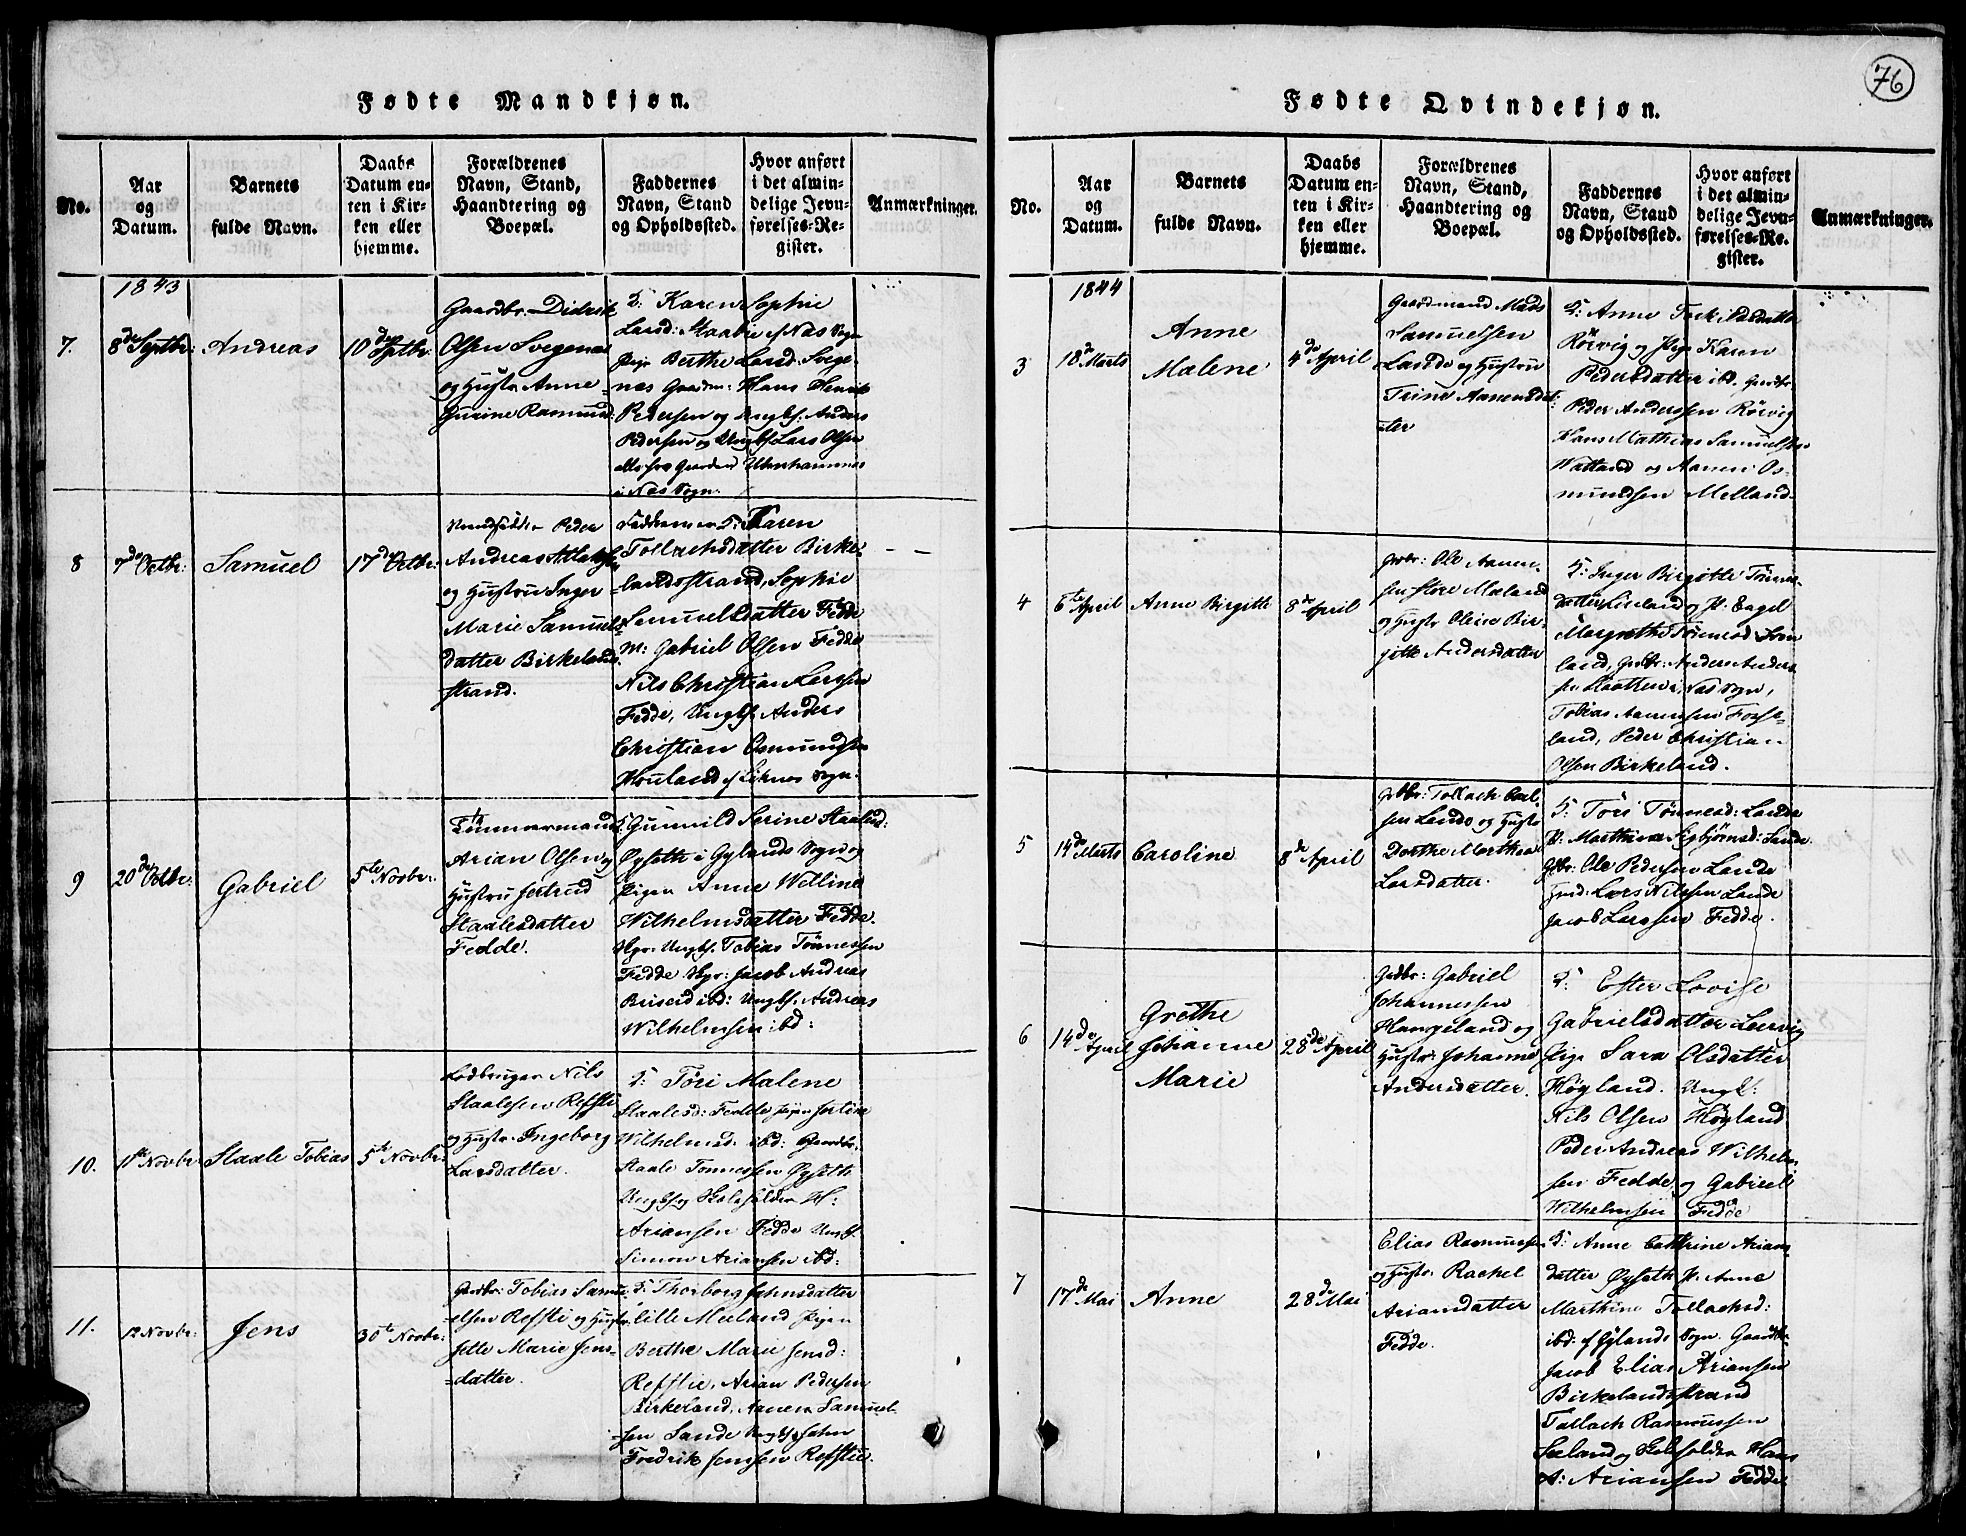 76
Fødte Mandkjøn.
No.
Aar
og
Datum.
Barnets
fulde Navn.
Daabs
Datum en-
ten i Kir-
ken eller
hjemme.
Forældrenes
Navn, Stand,
Haandtering og
Boepæl.
Faddernes
Navn, Stand
og Opholdssted.
Hvor anført
i det almin-
delige Jevn-
førelses-Re-
gister.
Anmærkninger.
1843
7.
8de Septbr:
Andreas
10de Septbr:
Gaardbr. Didrik
Olsen Svegenæs
og Hustr. Anne
Gurine Rasmusd:
F: Karen Sophie
Larsd: Staabie af Næs Sogn
Pige Berthe Larsd: Svege-
næs Gaardm: Hans Henrik
Pedersen og Ungk. Anders
Pedersen og Ungk. Lars Olsen
alle fra Gaarden
i Næs Sogn.
8
7de Octbr:
Samuel
17de Octbr:
Peder
Andreas
og Hustru Inger
Marie Samuels-
datter Birkelands-
strand.
Fadderne F: Karen
Tollachsdatter Birke-
landsstrand, Sophie
Samuelsdatter Fedde
M: Gabriel Olsen Fedde
Nils Christian Larssen
Fedde, Ungk. Anders
Christian Osmundsen
Houland af Liknes Sogn.
9
20de Octbr:
Gabriel
5te Novbr:
Tømmermand
Arian Olsen og
Hustru Jertrud
Staalesdatter
Fedde.
F: Gunnild Serine Staalesd:
Øysæth i Gylands Sogn og
Pigen Anne Willine
Wilhelmsdatter Fedde.
Ungk. Tobias Tønnessen
Fedde. Jacob Andreas
Briseid ibd: Ungk. Andreas
Wilhelmsen ibd:
10.
1ste Novbr:
Staale Tobias
5te Novbr:
Lodbruger Nils
Staalesen Refsti
og Hustr. Ingeborg
Larsdatter.
F: Tøri Malene
Staalesd: Fedde Pigen
Wilhelmsd. ibd: Gaardbr.
Staale Tønnessen Øysæth
Ungk. og Skoleholder H:
Ariansen Fedde Ungk.
Simon Ariansen ibd:
11.
12 Novbr:
Jens
30te Novbr:
Gardbr: Tobias Samu-
elsen Refsti og Hustr.
Jette Marie Jens-
datter.
F: Thorborg Jahnsdatter
lille Meeland Pigen
Berthe Marie Jensd:
Refstie, Arian Pedersen
Birkeland, Aanen Samuel-
sen Sande Ungk. Jahn
Fredrik Jensen Refstie.
Fødte Qvindekjøn.
No.
Aar
og
Datum.
Barnets
fulde Navn.
Daabs
Datum en-
ten i Kir-
ken eller
hjemme.
Forældrenes
Navn, Stand,
Haandtering og
Boepæl.
Faddernes
Navn, Stand
og Opholdssted.
Hvor anført
i det almin-
delige Jevn-
førelses-Re-
gister.
Anmærkninger.
1844
3
18de Marts
Anne
Malene
4de April
Gaardmand Mads
Samuelsen
Lædde og Hustru
Trine Aanensdat-
ter
F: Anne Torkildsdatter
Rørvig og Pige Karen
Pedersdatter ibd. Gardbr.
Peder Anderssen Rørvig
Hans Mathias Samuelsen
Watland og Aanen Os-
mundsen Melland.
4
6te April
Anne Birgitte
8de April
Grdbr: Ole Aanen-
sen store Mæland
og Hustr. Oline Bir-
gitte Andersdatter
F: Inger Birgitte Tønnis-
datter Liseland og P. Engel
Margrethe Tønnesd.
land, Grdbr: Anders Anders-
sen i Næs Sogn,
Tobias Aanensen
land, Peder Christian
Olsen Birkeland.
5
14de Marts
Caroline
8de April
Grdbr: Tollach Carl-
sen Lande og Hustr.
Dorthe Marthea
Larsdatter.
F: Tøri Tønnesd: Lande
P: Marthina Sigbjørnsd: Lande
Gbr: Ole Pedersen Lande
Lars Nilssen Lande
Jacob Larssen Fedde.
6
14de April
Grethe
Johanne
Marie
28de April
Grdbr: Gabriel
Johannessen
Hamgeland og
Hustr: Johanne
Andersdatter.
F: Ester Lovise
Gabrielsdatter Leervig
Pige Sara Olsdatter
Høyland. Ungk:
Nils Olsen Høyland
Peder Andreas Wilhelm-
sen Fedde, og Gabriel
Wilhelmsen Fedde
7
17de Mai
Anne
28de Mai
Elias Rasmussen
og Hustr. Rachel
Ariansdatter
Fedde.
F: Anne Cathrine Arians-
datter Øysæth P. Anne
Marthine Tollachsd:
ibd: af Gylands Sogn. Gaardbr.
Jacob Elias Ariansen
Birkelandsstrand
Tollach Rasmussen
Seeland og Skoleholder Hans
A: Ariansen Fedde